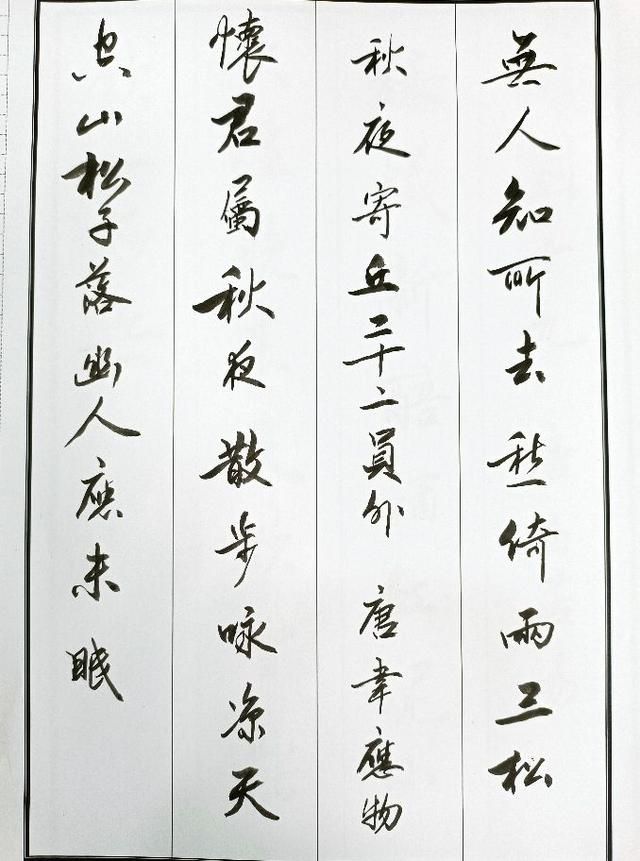 無人知所去愁倚兩三松
秋夜寄丘二十二員外 唐韋應物
懷君屬秋夜散步咏涼天
空山松子落幽人應未眠